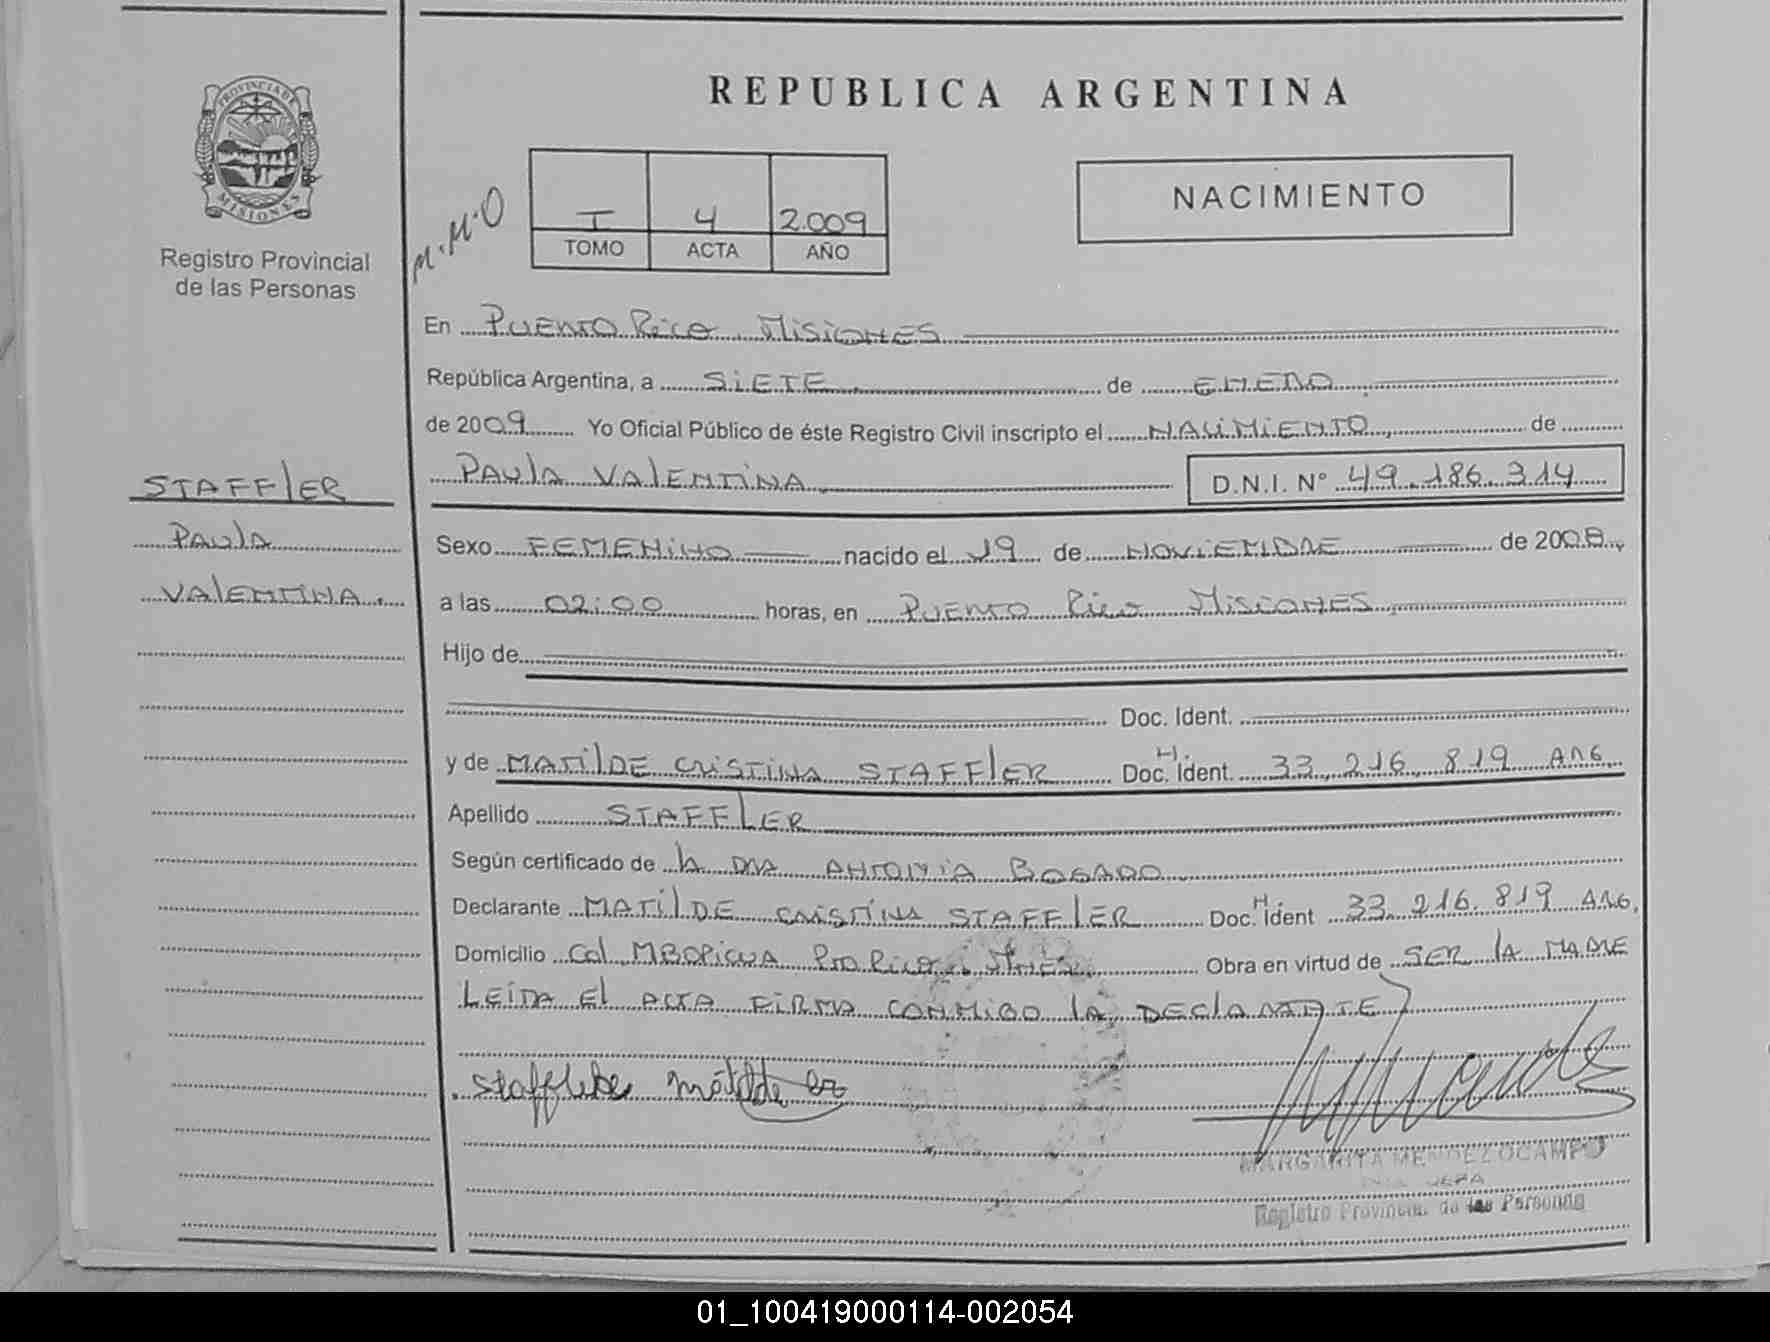 REPUBLICA ARGENTINA
PROVINCIA DE
MISIONES
Registro Provincial
de las Personas
M.M.O
I 4 2.009
TOMO ACTA AÑO
NACIMIENTO
En PUERTO Rico, MISIONES
República Argentina, a SIETE de ENERO
de 2009 Yo Oficial Público de éste Registro Civil inscripto el NACIMIENTO, de
PAULA VALENTINA D.N.I. N° 49.186.314
STAFFLER
PAULA
VALENTINA.
Sexo FEMENINO nacido el 19 de NOVIEMBRE de 2008,
a las 02:00 horas, en PUERTO Rico MISIONES,
Hijo de
Doc. Ident.
y de MATILDE CRISTINA STAFFLER Doc. N. Ident. 33.216.819 ARG.
Apellido STAFFLER
Según certificado de LA DRA ANTONIA BOGADO
Declarante MATILDE CRISTINA STAFFLER Doc. N. Ident 33.216.819 ARG.
Domicilio Col MBOPICUA Pto Rico, Mnes. Obra en virtud de SER LA MADRE
LEIDA El ACTA FIRMA CONMIGO LA DECLARANTE
Staffler Matilde
MARGARITA MENDEZ OCAMPO
JEFA
Registro Provincial de las Personas
01_100419000114-002054